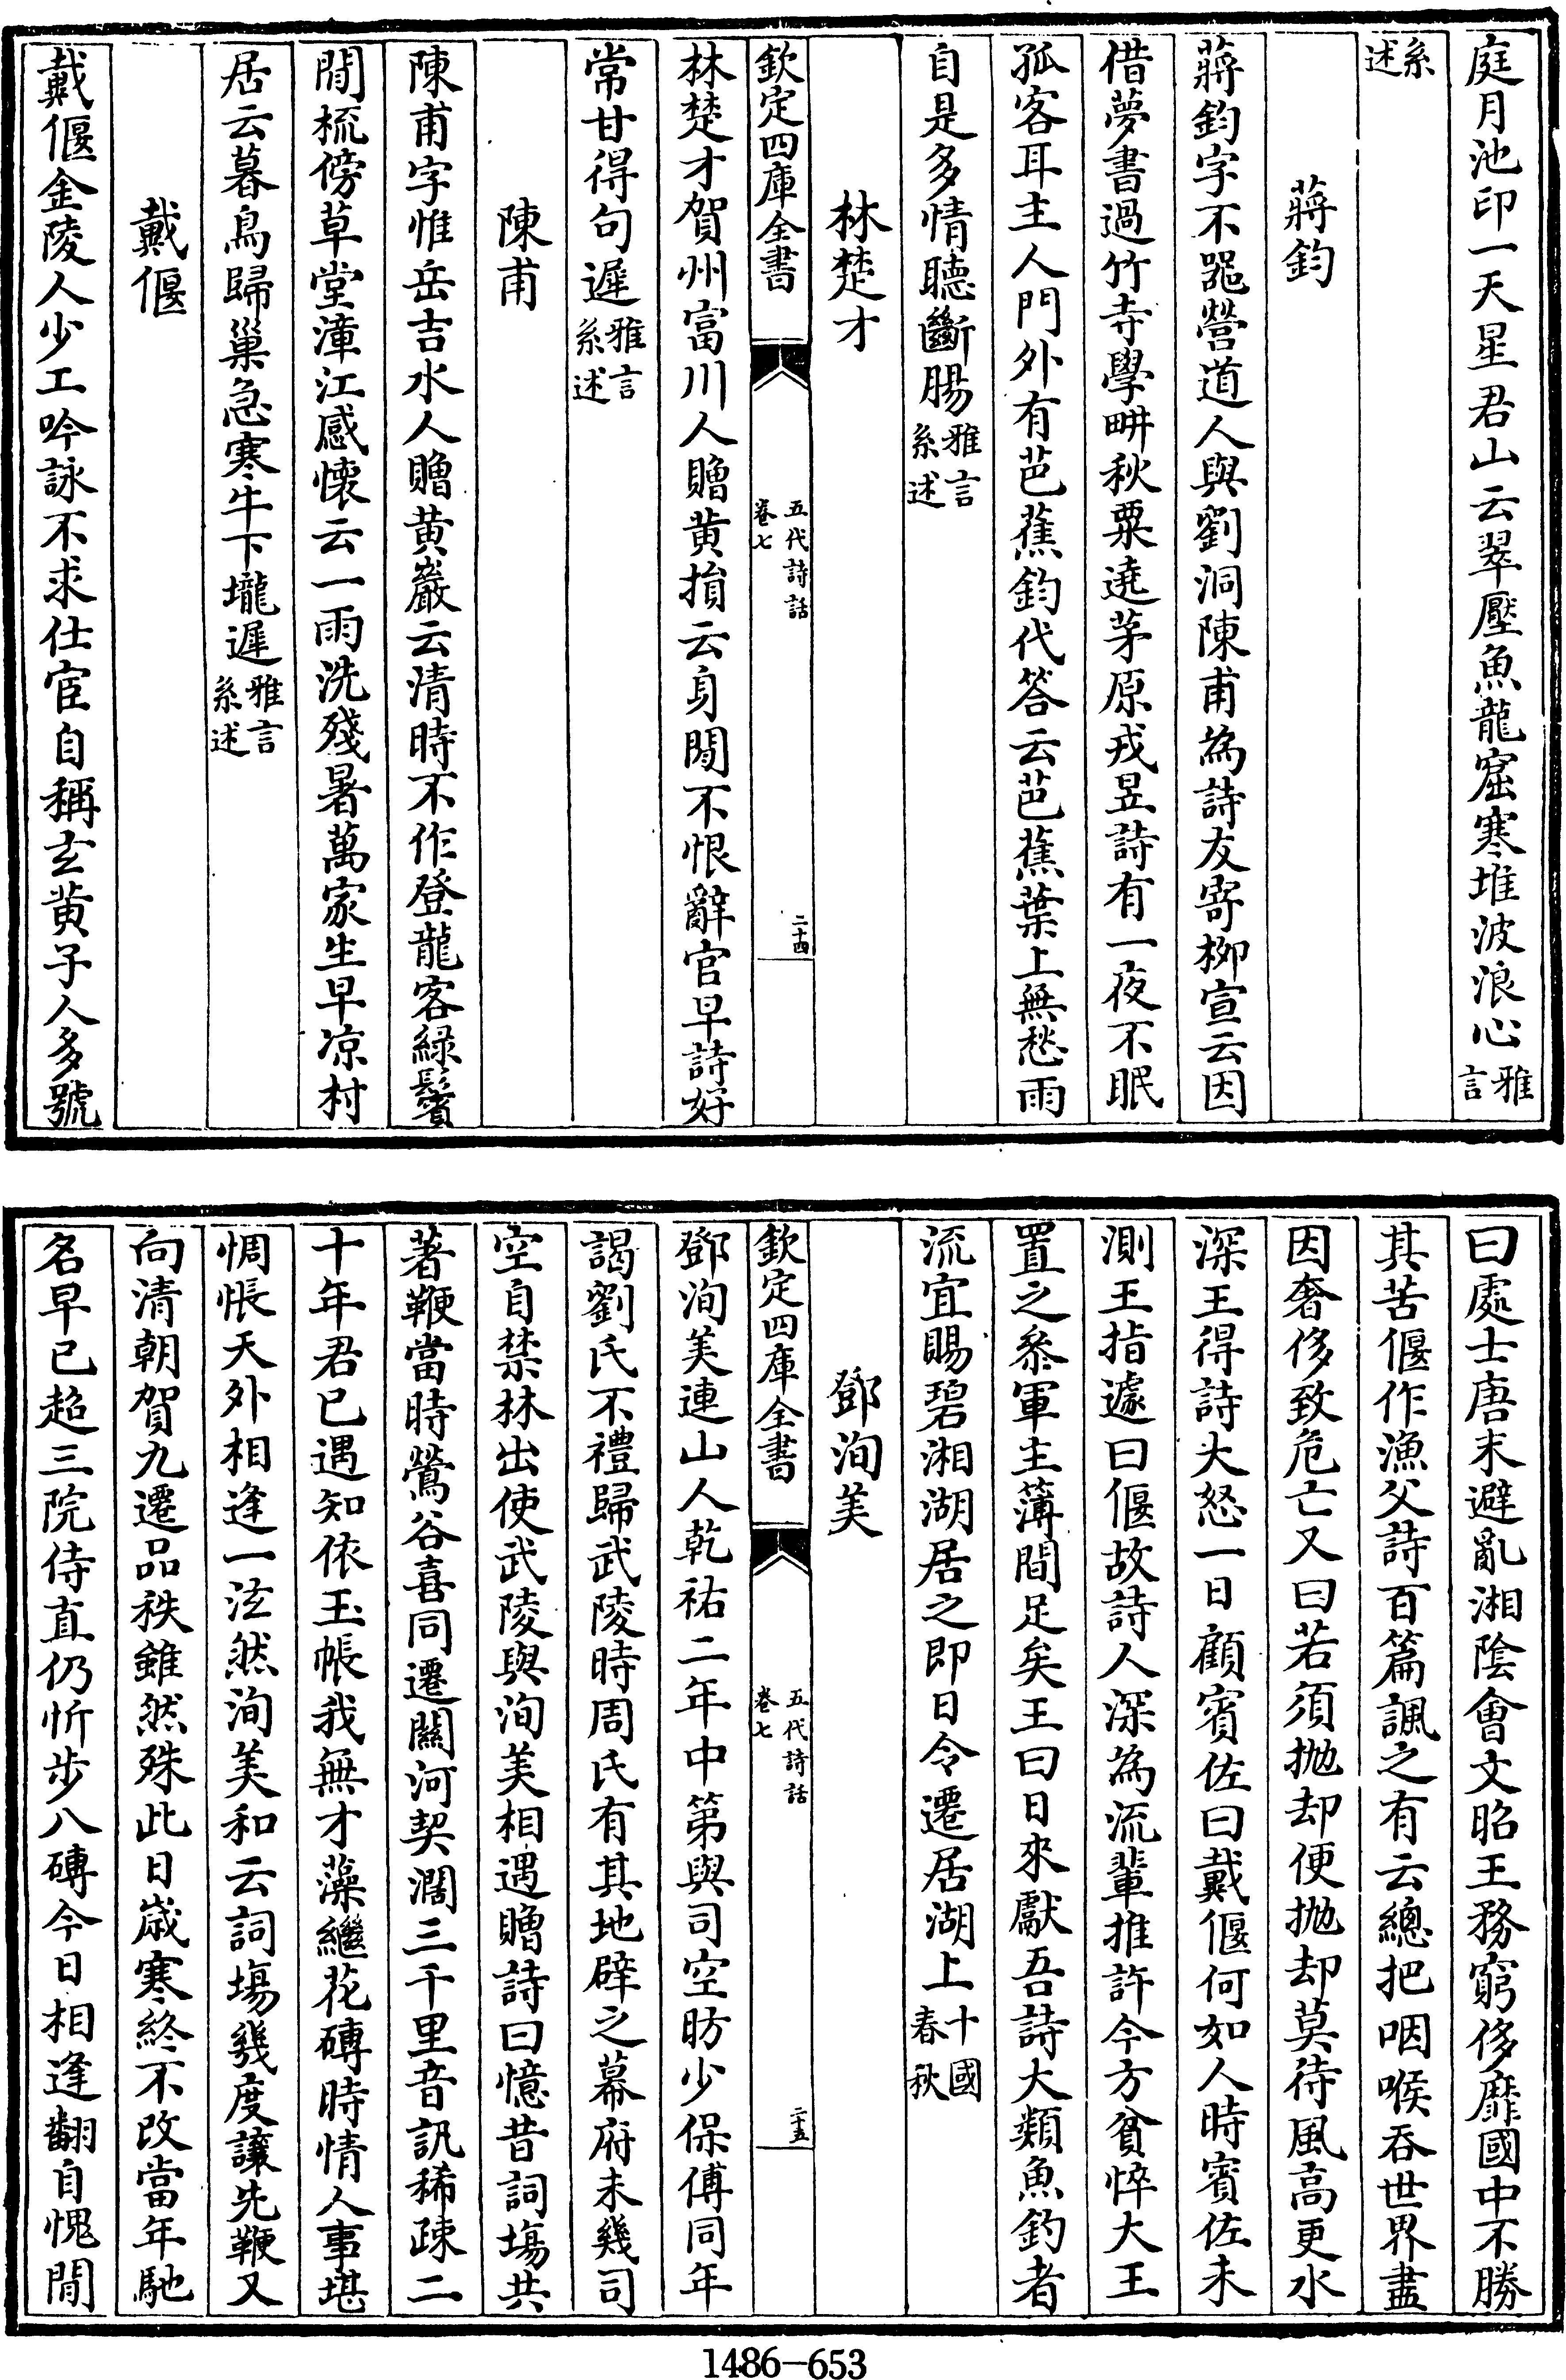 庭月池印一天星君山云翠壓魚龍窟寒堆波浪心雅言
系述
蔣鈞
蔣鈞字不噐營道人與劉洞陳甫為詩友寄柳宣云因
借夢書過竹寺學畊秋粟遶茅原戎昱詩有一夜不眠
孤客耳主人門外有芭蕉鈞代答云芭蕉葉上無愁雨
自是多情聽斷腸雅言系述
林楚才
欽定四庫全書
五代詩話
卷七
二十四
林楚才賀州富川人贈黄損云身閒不恨辭官早詩好
常甘得句遲雅言系述
陳甫
陳甫字惟岳吉水人贈黄巖云清時不作登龍客緑鬢
閒梳傍草堂漳江感懷云一雨洗殘暑萬家生早凉村
居云暮鳥歸巢急寒牛下壠遲雅言系述
戴偃
戴偃金陵人少工吟詠不求仕宦自稱玄黄子人多號
曰處士唐末避亂湘陰會文昭王務窮侈靡國中不勝
其苦偃作漁父詩百篇諷之有云總把咽喉吞世界盡
因奢侈致危亡又曰若須抛却便抛却莫待風高更水
深王得詩大怒一日顧賓佐曰戴偃何如人時賓佐未
測王指遽曰偃故詩人深為流輩推許今方貧悴大王
置之叅軍主簿間足矣王曰日來獻吾詩大類魚釣者
流宜賜碧湘湖居之即日令遷居湖上十國春秋
鄧洵美
欽定四庫全書
五代詩話
卷七
二十五
鄧洵美連山人乾祐二年中第與司空昉少保傅同年
謁劉氏不禮歸武陵時周氏有其地辟之幕府未幾司
空自禁林出使武陵與洵美相遇贈詩曰憶昔詞塲共
著鞭當時鶯谷喜同遷關河契濶三千里音訊稀疎二
十年君已遇知依玉帳我無才藻繼花磚時情人事堪
惆悵天外相逢一泫然洵美和云詞塲幾度讓先鞭又
向清朝賀九遷品秩雖然殊此日歳寒終不改當年馳
名早已超三院侍直仍忻步八磚今日相逢翻自愧閒
1486—653